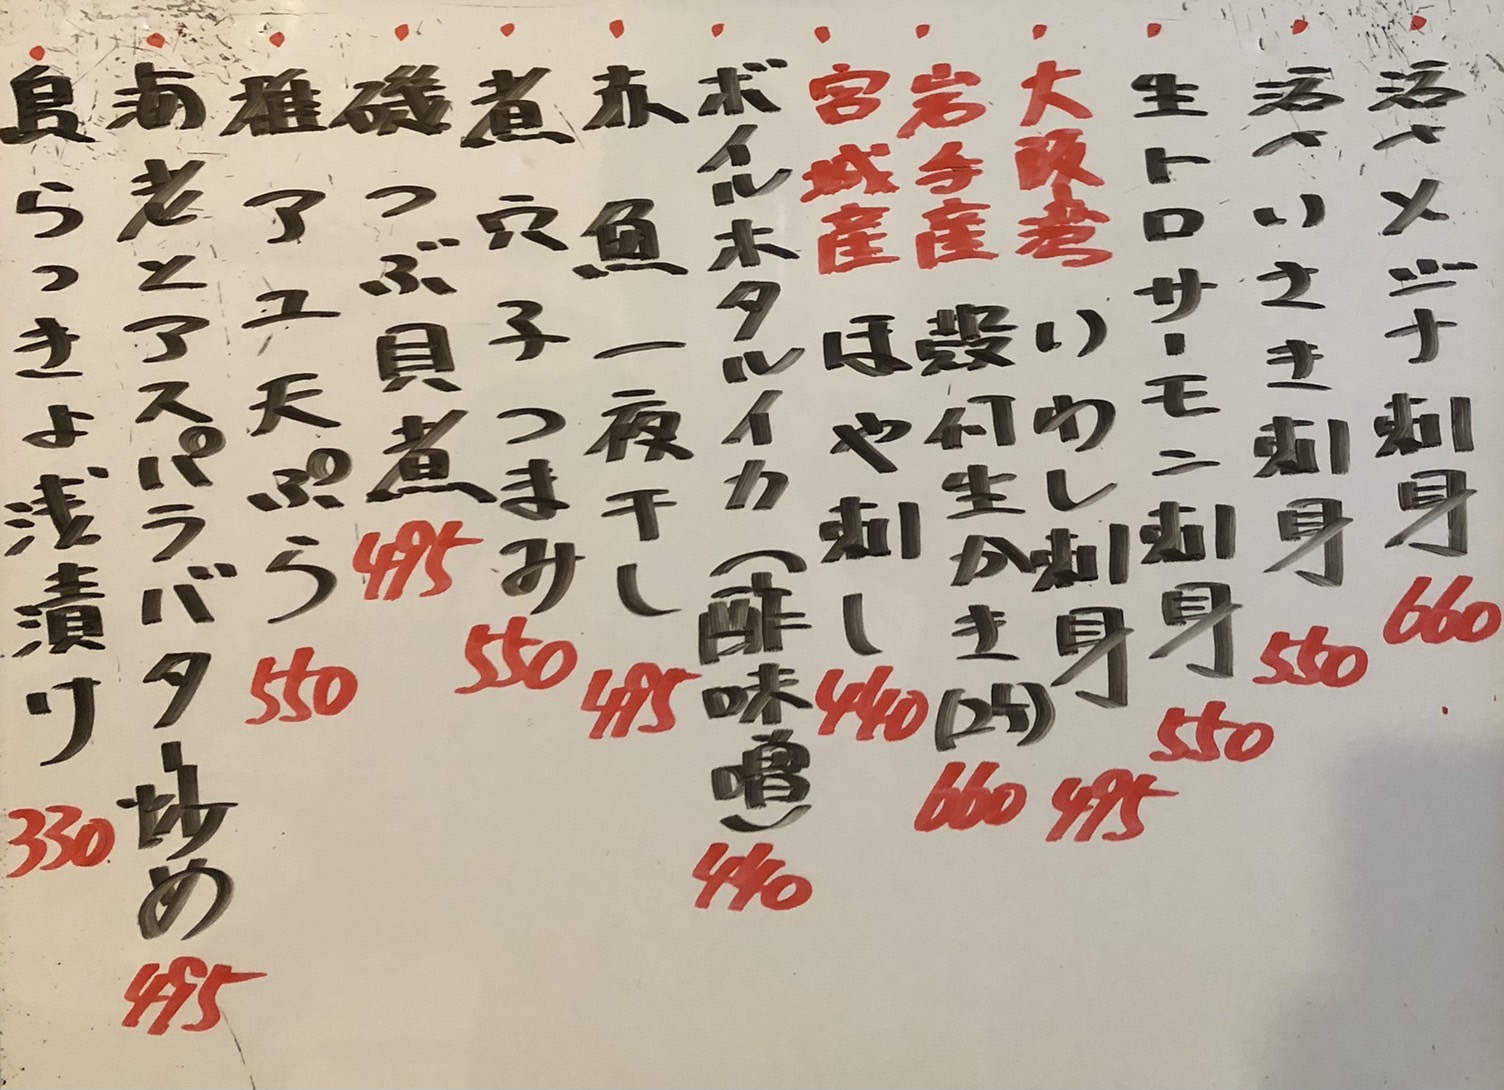 活〆メジナ刺身 660
活〆いさき刺身 550
生トロサーモン刺身 550
大阪産 いわし刺身 495
岩手産 殻付生かき(2ケ) 660
宮城産 ほや刺し 440
ボイルホタルイカ(酢味噌) 440
赤魚一夜干し 495
煮穴子つまみ 550
磯つぶ貝煮 495
稚アユ天ぷら 550
海老とアスパラバター炒め 495
島らっきょ浅漬け 330